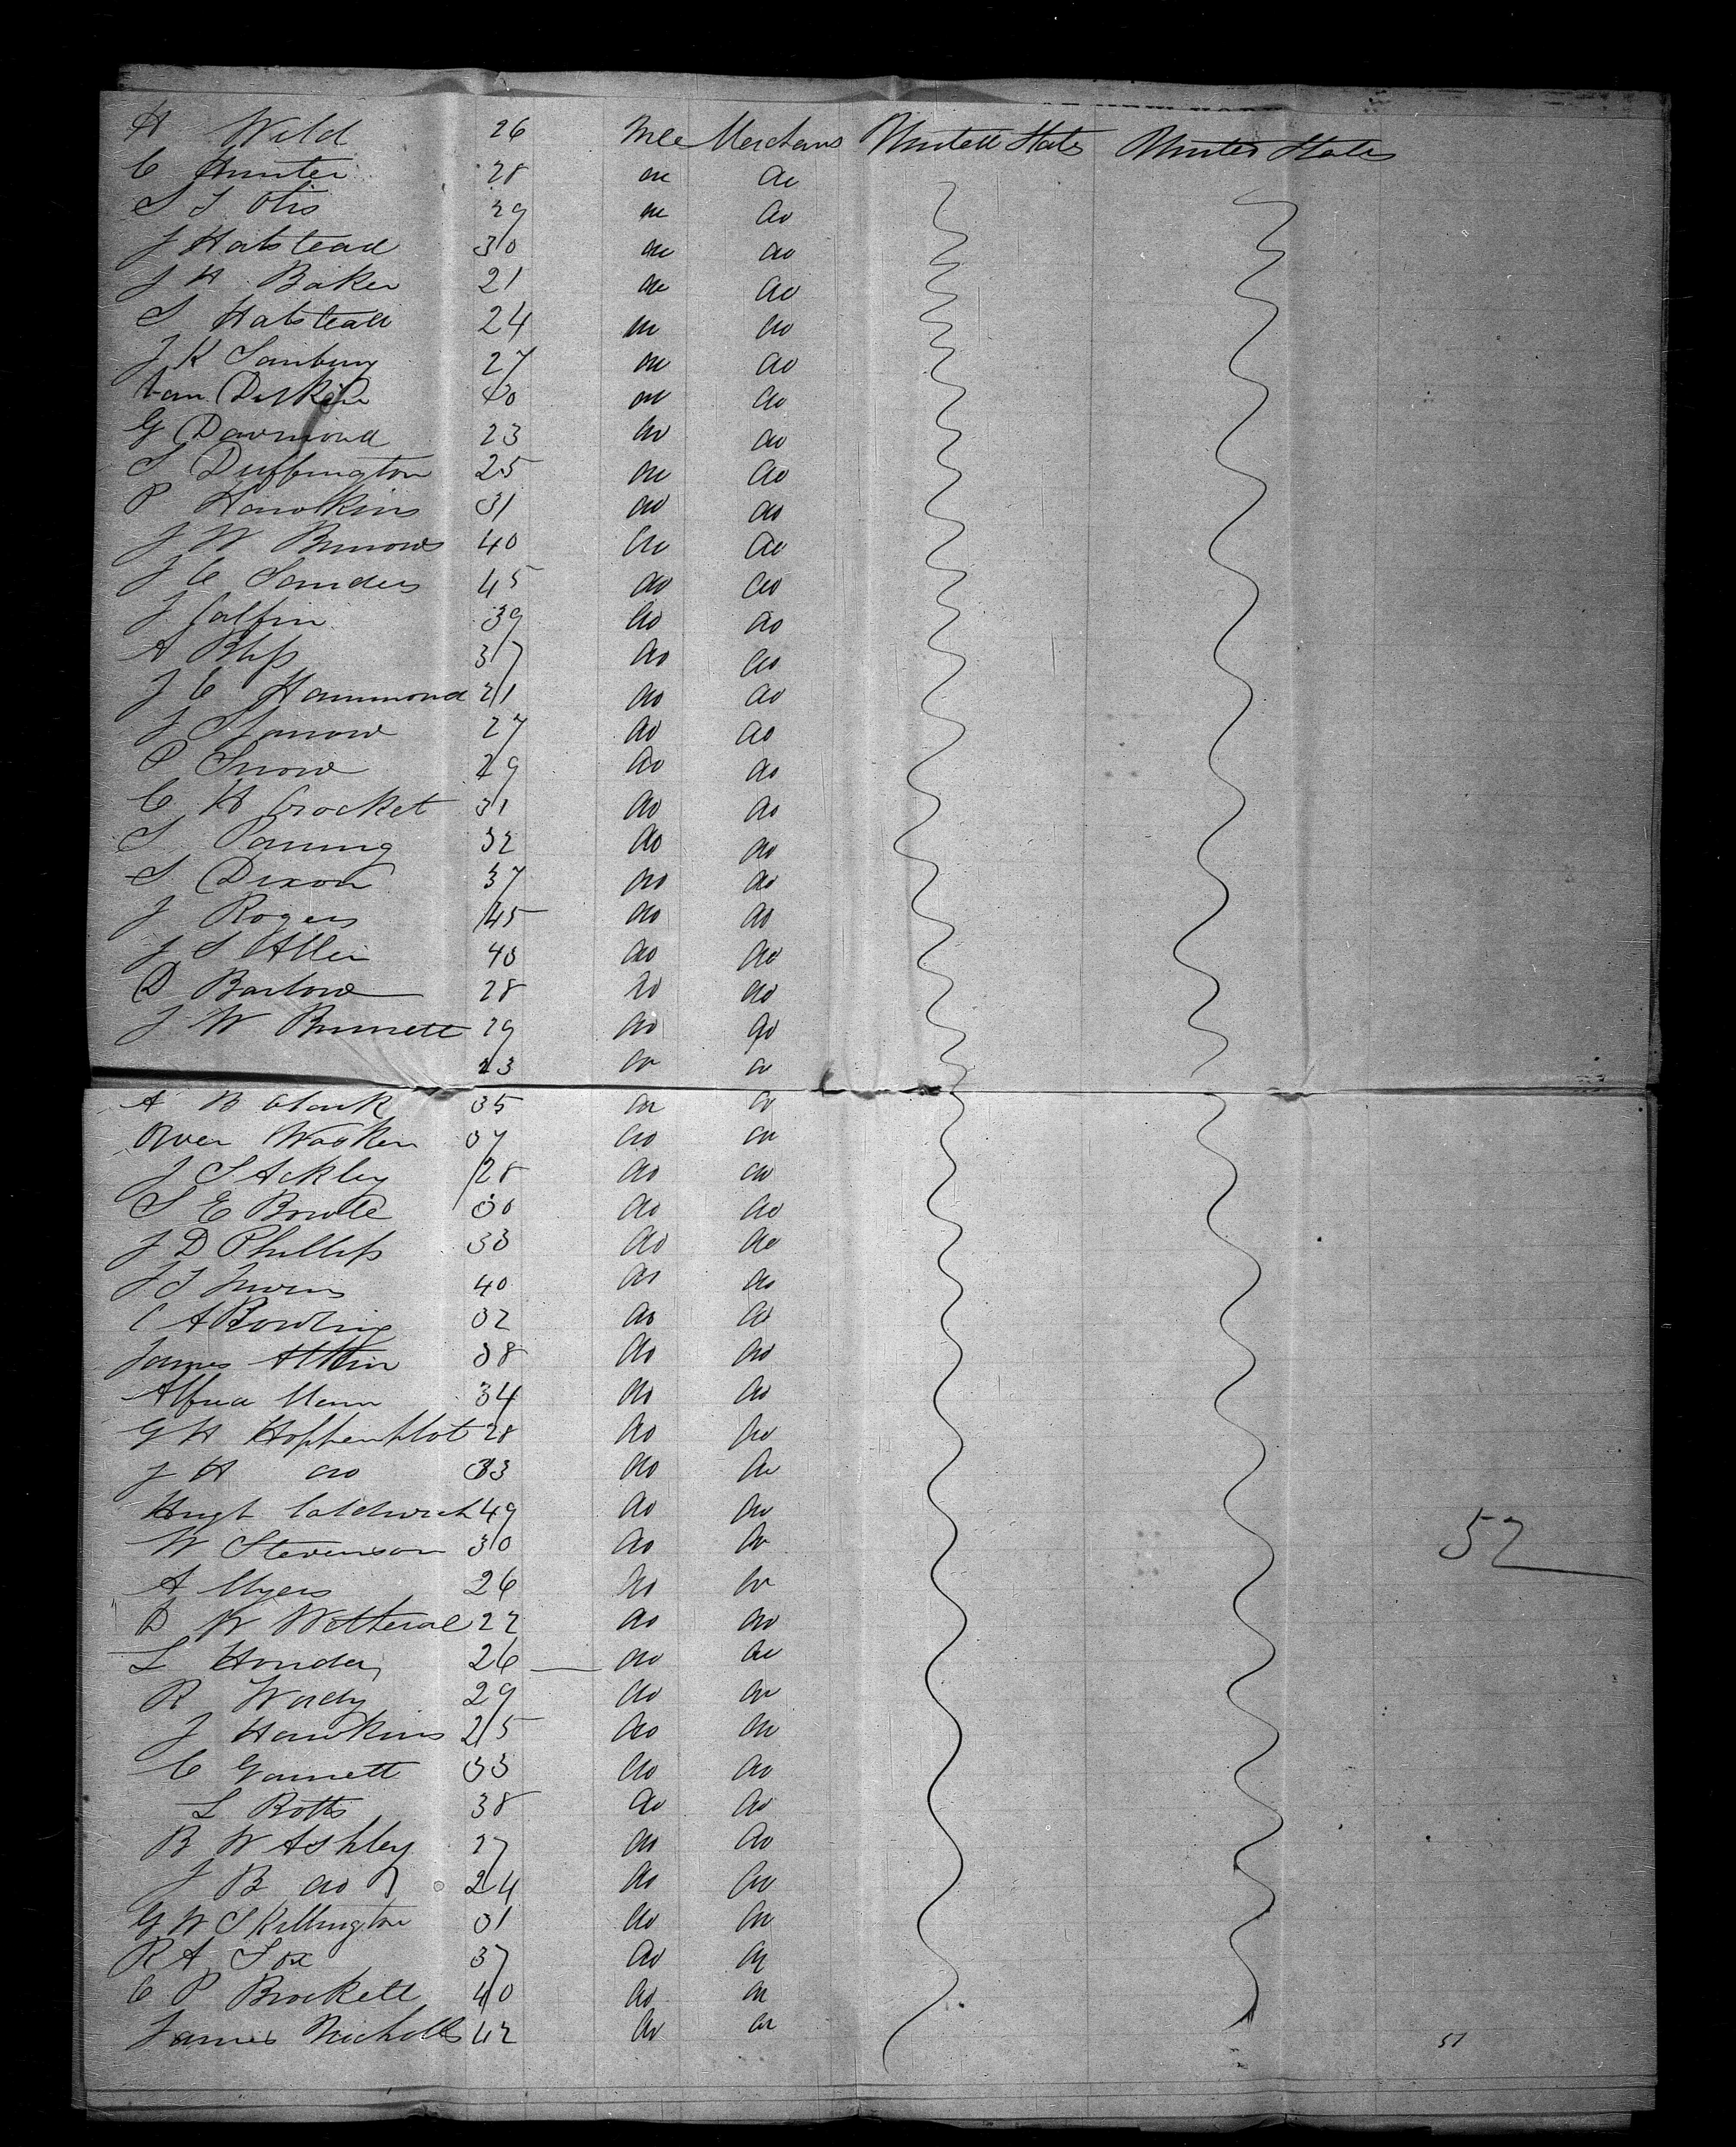 H Wild 26 Mle Merchans United States United States
C Hunter 28 do do
S T Otis 29 do do
J Halstead 30 do do
J H Baker 21 do do
S Halstead 24 do do
J K 27 do do
Van 40 do do
G 23 do do
S Duffington 25 do do
P Hawkins 31 do do
J W Burrows 40 do do
J C Sanders 45 do do
J 39 do do
A Bliss 37 do do
J C Hammond 21 do do
J 27 do do
P Snow 29 do do
C H Crocket 31 do do
S 32 do do
S Dixon 37 do do
J Rogers 45 do do
J S Allen 43 do do
D Barlow 28 do do
J W Burnett 29 do do
23 do do
A B Clark 35 do do
Owen 37 do do
J S Ackley 28 do do
S E 30 do do
J D Phillips 33 do do
J T 40 do do
C A Bowling 32 do do
James 38 do do
Alfred Mann 34 do do
G H 28 do do
J H do 33 do do
Hugh 49 do do
W Stevenson 30 do do
52
A Myers 26 do do
D W Wetheral 22 do do
L 26 do do
R 29 do do
J Hawkins 25 do do
C Garnett 33 do do
L Botts 38 do do
B W Ashley 27 do do
J B do 24 do do
G W Skillington 31 do do
R A 37 do do
C P Brockett 40 do do
James Nicholls 42 do do
51